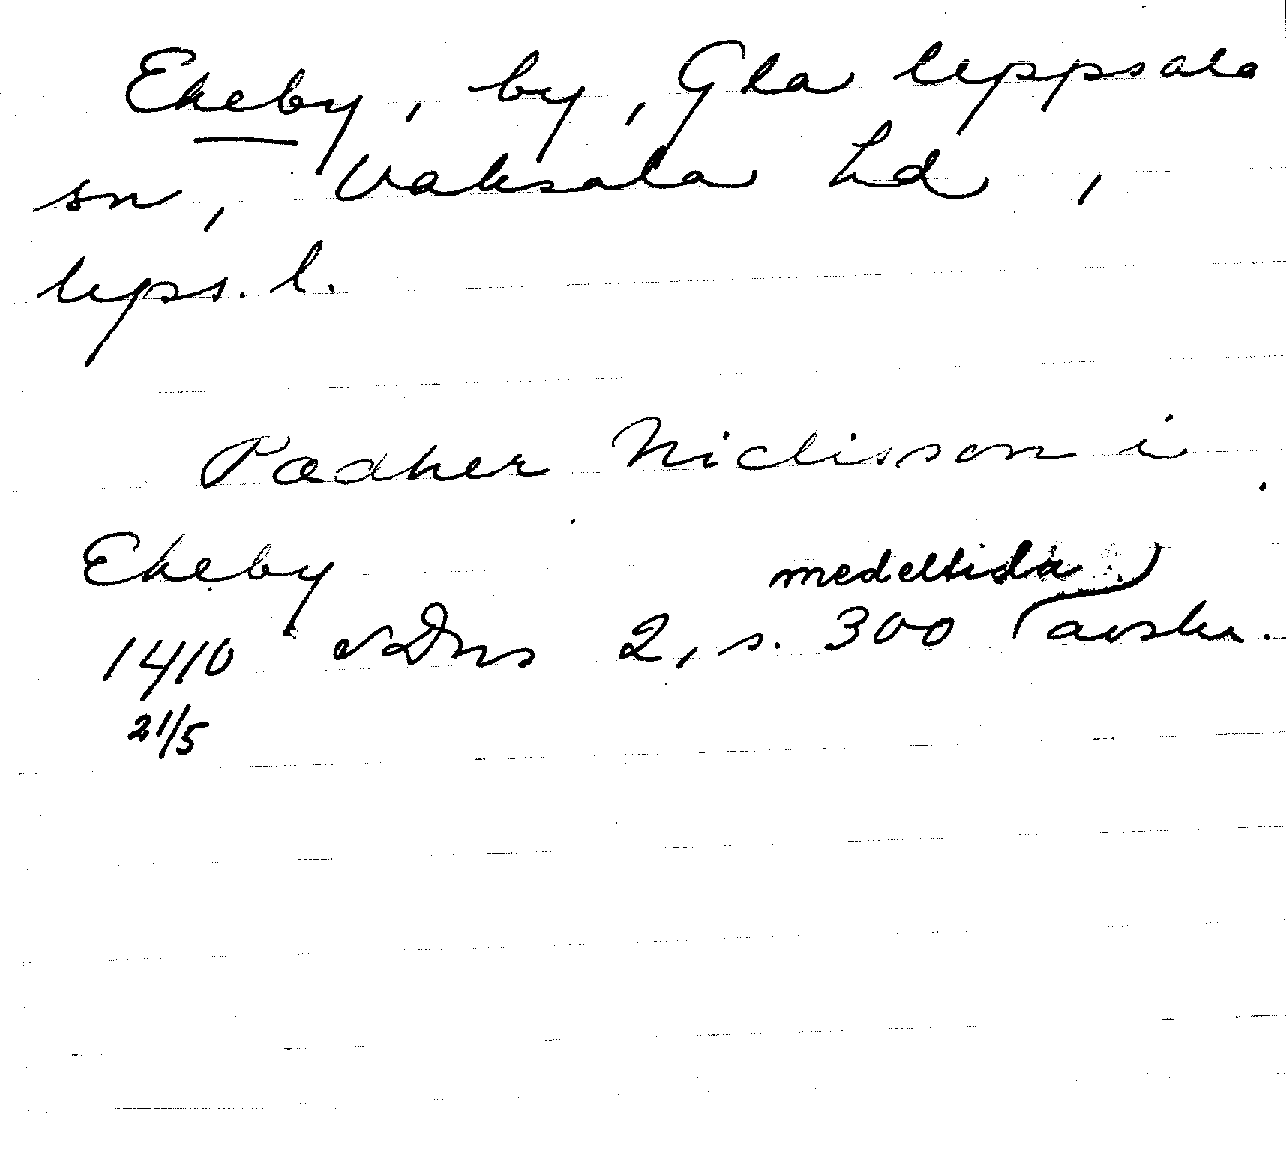 Ekeby, by, Gla Uppsala
sn, Vaksala hd,
Upps. l.
Pædher Niclisson i
Ekeby
medeltida
1410 SDns 2, s. 300 (avskr.)
21/5